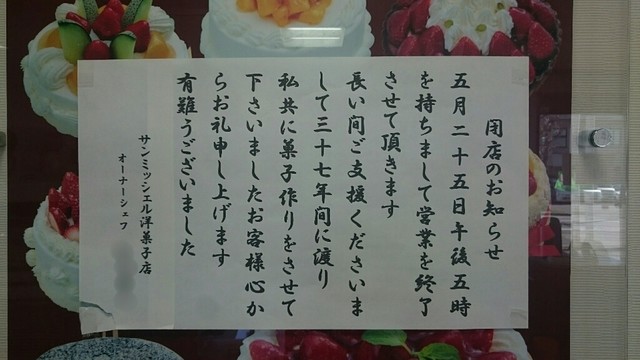 閉店のお知らせ
五月二十五日午後五時
を持ちまして営業を終了
させて頂きます
長い間ご支援くださいま
して三十七年間に渡り
私共に菓子作りをさせて
下さいましたお客様心か
らお礼申し上げます
有難うございました
サンミッシェル洋菓子店
オーナーシェフ